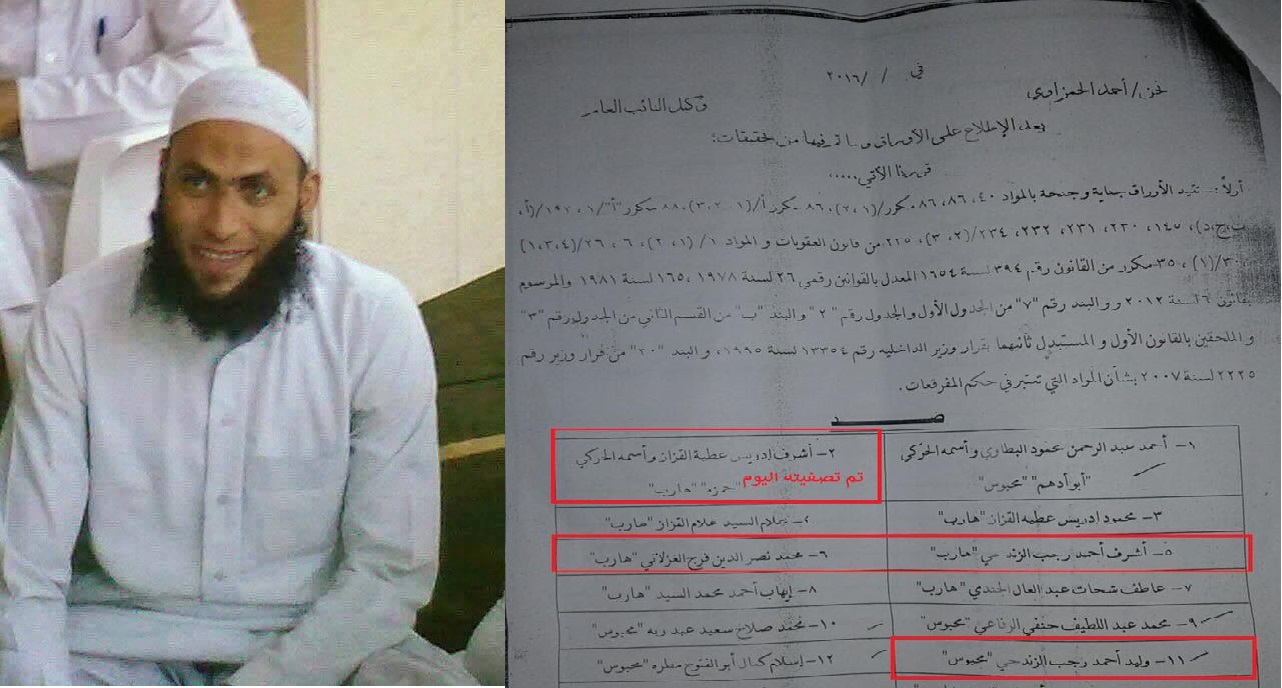 في / / ٢٠١٦
نحن/ أحمد الحمزاوي وكيل النائب العام
بعد الإطلاع على الأوراق وما تم فيها من تحقيقات:
قررنا الآتي.....
أولاً: تقيد الأوراق جناية وجنحة بالمواد ٤٠، ٨٦، ٨٦ مكرر/(٢،١)، ٨٦ مكرر أ/(١، ٢، ٣)، ٨٨ مكرر "أ"/١،
ب،ج،د)، ١٤٥، ٢٣٠، ٢٣١، ٢٣٢، ٢٣٤/(٢، ٣)، ٢٣٥ من قانون العقوبات و المواد ١/(١، ٢)، ٦، ٢٦/(١،٣،٤)
٣٠/(١)، ٣٥ مكرر من القانون رقم ٣٩٤ لسنة ١٩٥٤ المعدل بالقوانين رقمي ٢٦ لسنة ١٩٧٨، ١٦٥ لسنة ١٩٨١ والمرسوم
بقانون ٦ لسنة ٢٠١٢ و البند رقم "٧" من الجدول الأول والجدول رقم "٢" والبند "ب" من القسم الثاني من الجدول رقم "٣"
و الملحقين بالقانون الأول و المستبدل ثانيهما بقرار وزير الداخليه رقم ١٣٣٥٤ لسنة ١٩٩٥، و البند "٢٠" من قرار وزير رقم
٢٢٢٥ لسنة ٢٠٠٧ بشأن المواد التي تعتبر في حكم المفرقعات.
ضـــد
١- أحمد عبد الرحمن محمود البطاوي وأسمه الحركي
"أبو أدهم" "محبوس"
٢- أشرف إدريس عطية القزاز وأسمه الحركي
"حمزه" "هارب"
تم تصفيته اليوم
٣- محمود ادريس عطيه القزاز "هارب"
٤- السيد علام القزاز "هارب"
٥- أشرف أحمد رجب الزندحي "هارب"
٦- محمد نصر الدين فرج الغزلاني "هارب"
٧- عاطف شحات عبد العال الجندي "هارب"
٨- إيهاب أحمد محمد السيد "هارب"
٩- محمد عبد اللطيف حنفي الرفاعي "محبوس"
١٠- محمد صلاح سعيد عبد ربه "محبوس"
١١- وليد أحمد رجب الزندحي "محبوس"
١٢- إسلام كمال أبو الفتوح "محبوس"